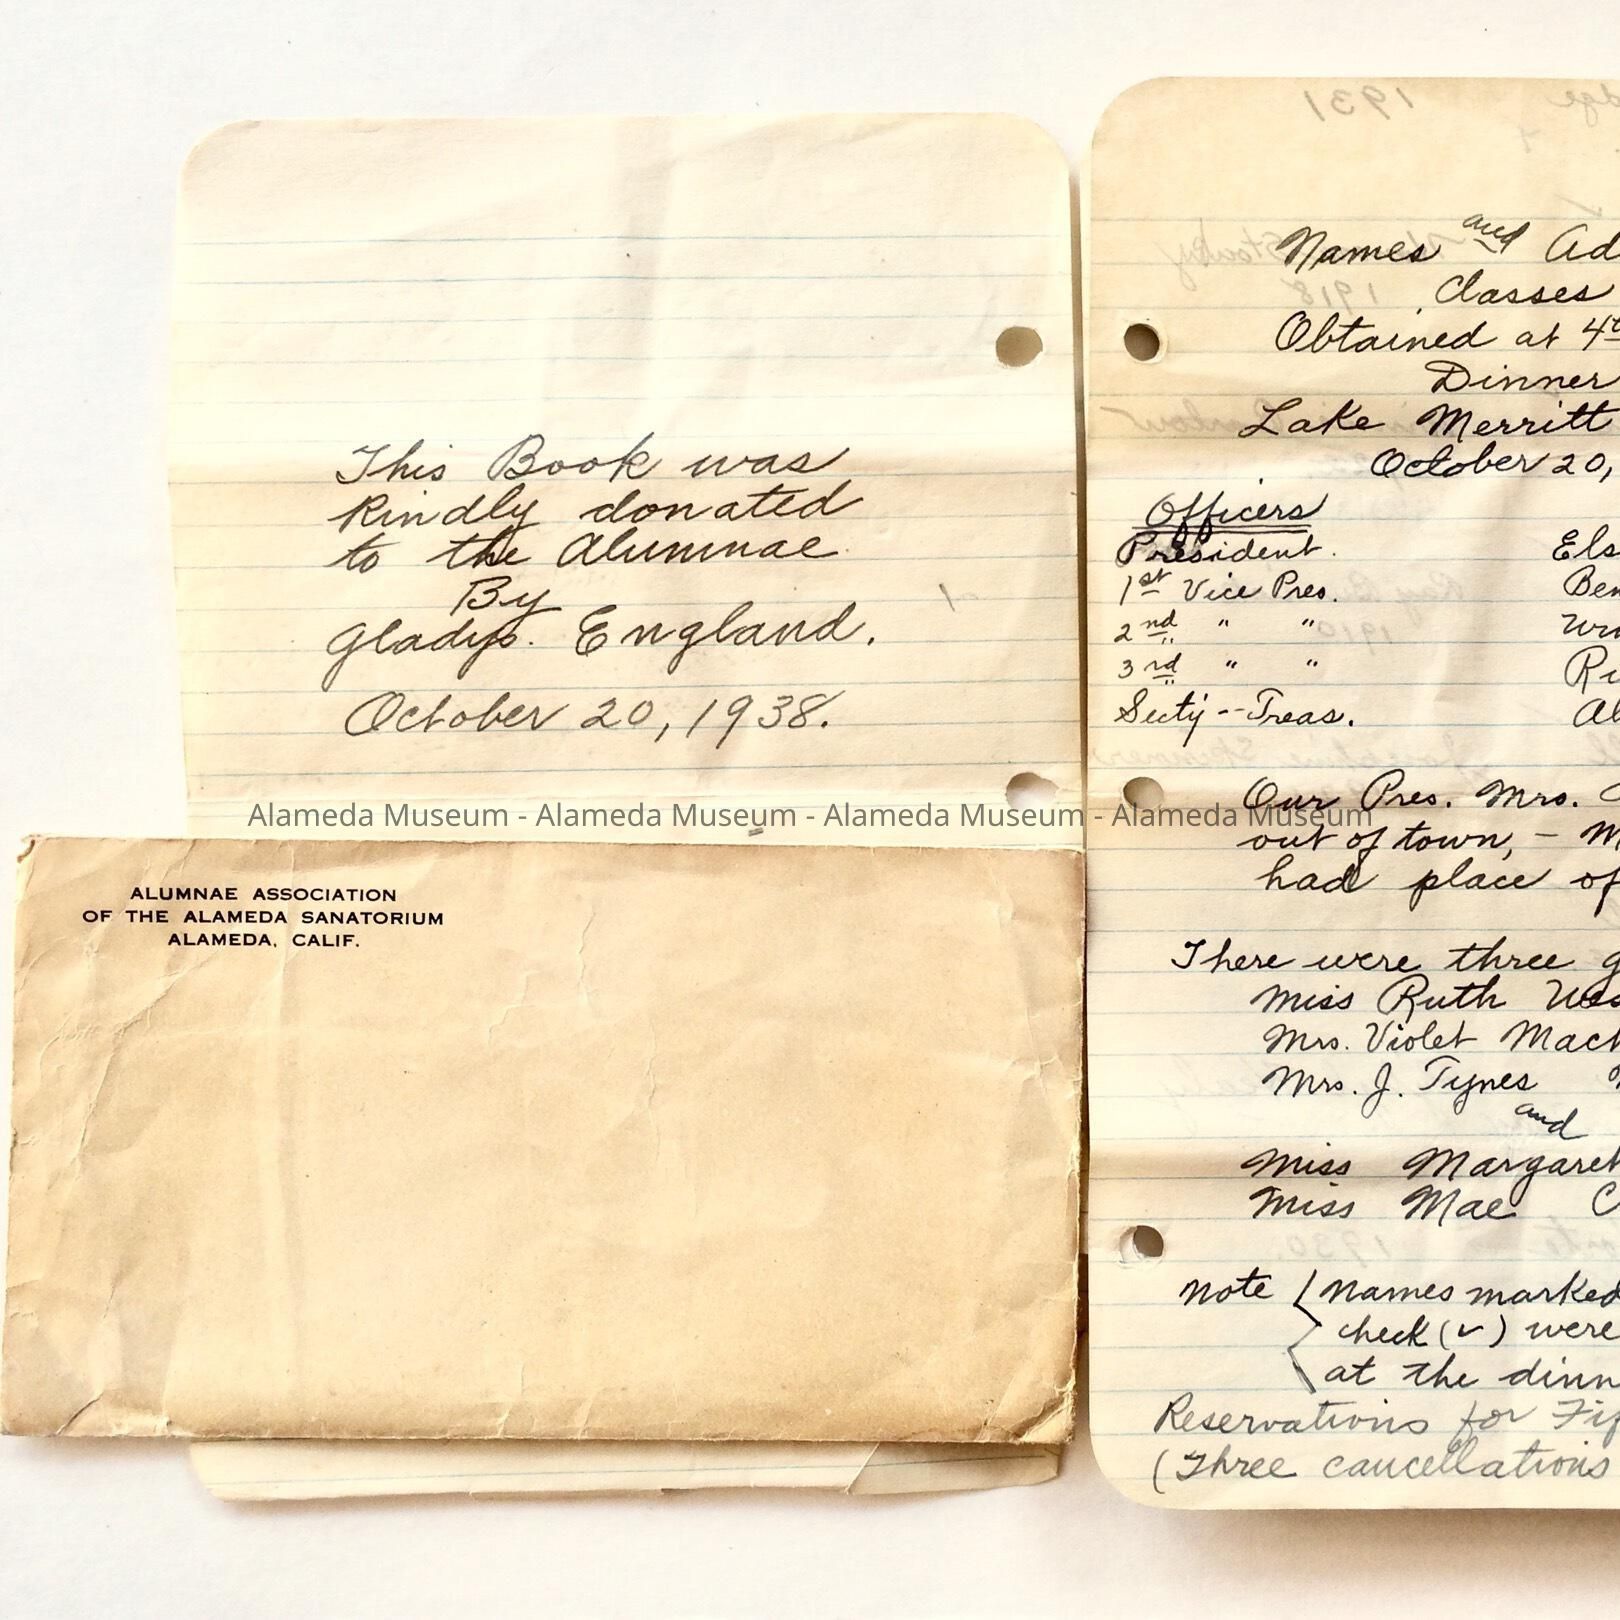 This Book was
Kindly donated
to the Alumnae
By
Gladys. England.
October 20, 1938.
Alameda Museum - Alameda Museum - Alameda Museum - Alameda Museum
ALUMNAE ASSOCIATION
OF THE ALAMEDA SANATORIUM
ALAMEDA, CALIF.
1931
Names and Ad
Classes
1918
Obtained at 4t
Dinner
Lake Merritt
October 20,
Officers
President. Els
1st Vice Pres. Ben
2nd " "
3rd " " Ru
Secty -- Treas. Al
Our Pres. Mrs.
out of town, - M
had place of
There were three g
Miss Ruth Wes
Mrs. Violet Mach
Mrs. J. Tynes
and
Miss Margaret
Miss Mae C
1930
Note { Names marked
check (✓) were
at the dinn
Reservations for Fif
(Three cancellations